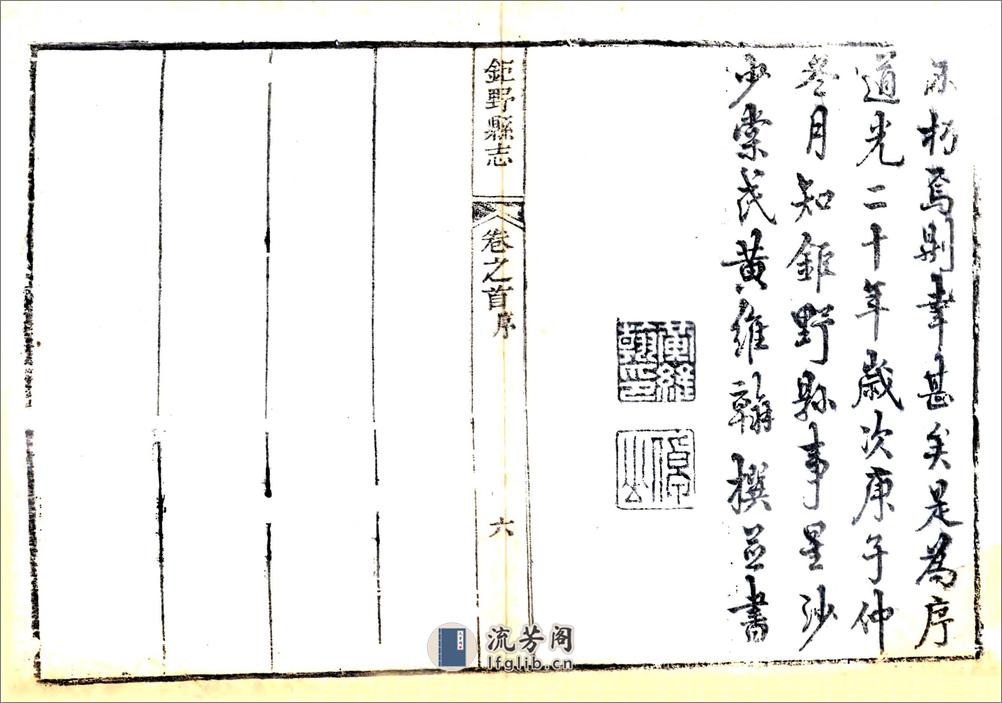 不朽焉則幸甚矣是為序
道光二十年歲次庚子仲
冬月知鉅野縣事星沙
少棠氏黃維翰撰並書
黃維翰印
鉅野縣志
卷之首 序
六
流芳阁
lfglib.cn